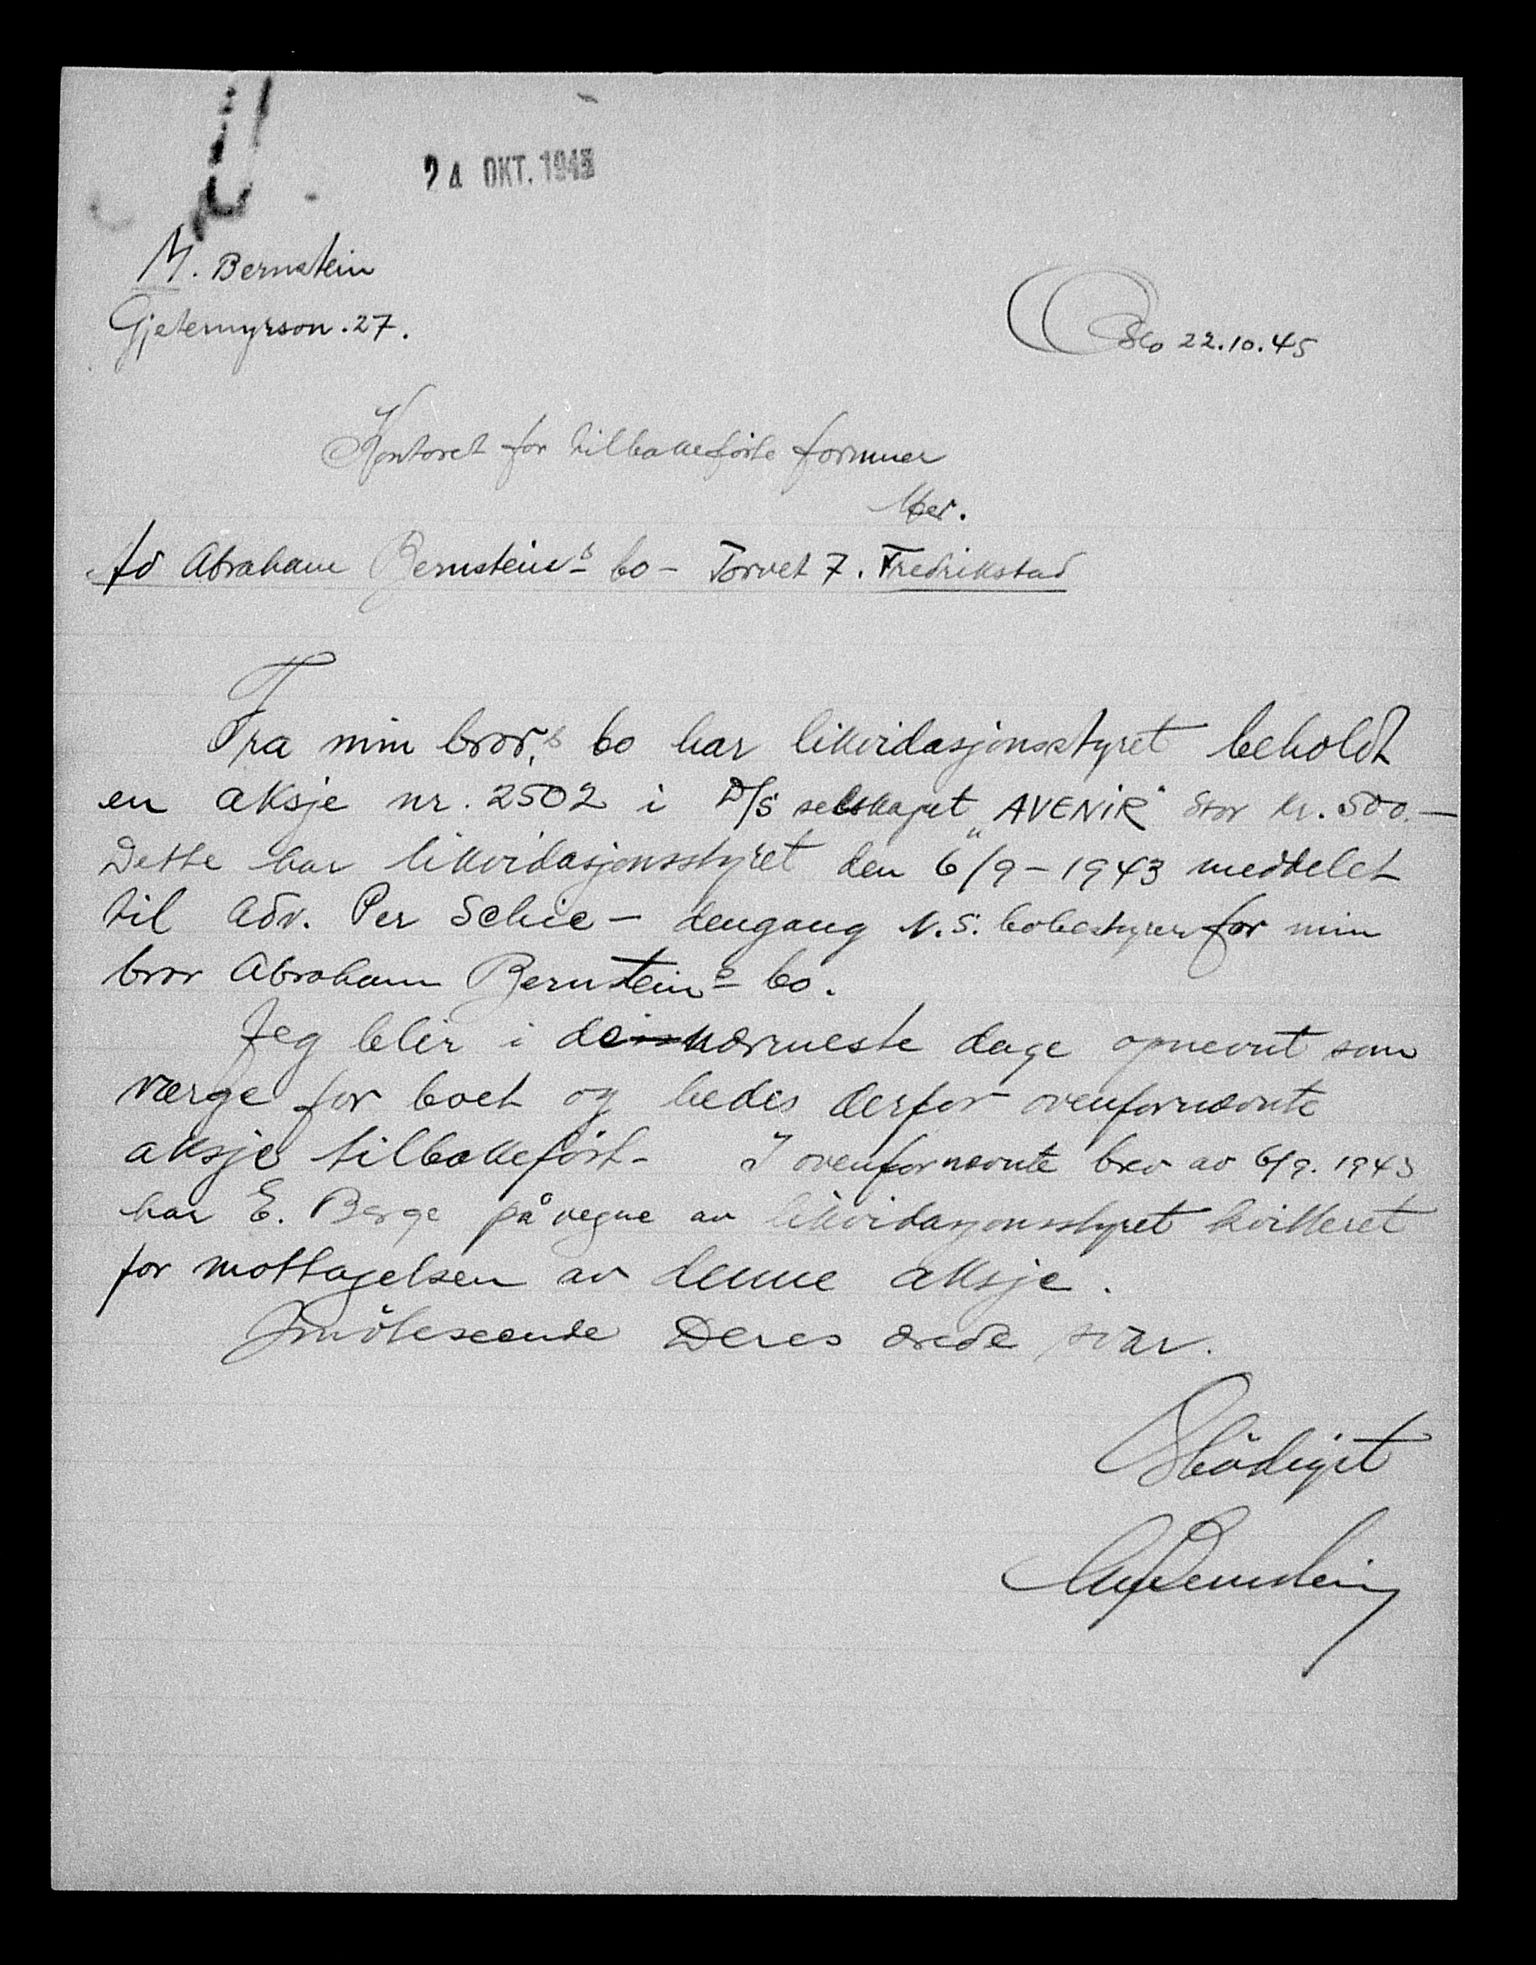 24 OKT. 1945
M. Bernstein
Gjetemyrson. 27.
Oslo 22.10.45
Kontoret for tilbakeførte formuer
Her.
fd Abraham Bernstein's bo - Torvet 7. Fredrikstad
Fra min bror,s bo har likvidasjonsstyret beholdt
en aksje nr. 2502 i D/S selskapet „AVENIR" stor kr. 500.—
Dette har likvidasjonsstyret den 6/9 - 1943 meddelet
til adv. Per Schie - dengang N.S. bobestyrer for min
bror Abraham Bernstein's bo.
Jeg blir i de nærmeste dage opnevnt som
værge for boet og bedes derfor ovenfornevnte
aksje tilbakeført - I ovenfornevnte brev av 6/9. 1943
har E. Berge på vegne av likvidasjonsstyret kvitteret
for mottagelsen av denne aksje.
Imøteseende Deres ærede svar.
Ærbödigst
M Bernstein